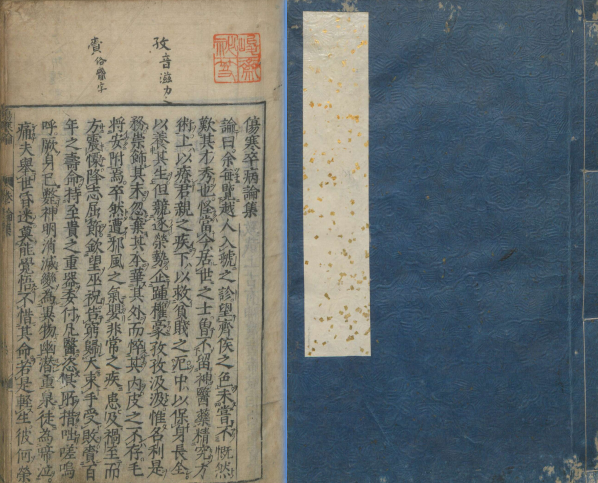 孜音滋
賫俗齎字
傷寒卒病論集
論曰余每覽越人入虢之診望齊侯之色未嘗不慨然
歎其才秀也怪當今居世之士曽不留神醫藥精究方
術上以療君親之疾下以救貧賤之厄中以保身長全
以養其生但競逐榮勢企踵權豪孜孜汲汲惟名利是
務崇飾其末忽棄其本華其外而悴其內皮之不存毛
將安附焉卒然遭邪風之氣嬰非常之疾患及禍至而
方震慄降志屈節欽望巫祝告窮歸天束手受敗賫百
年之壽命持至貴之重器委付凡醫恣其所措咄嗟嗚
呼厥身已斃神明消滅變為異物幽潛重泉徒為啼泣
痛夫舉世昏迷莫能覺悟不惜其命若是輕生彼何榮